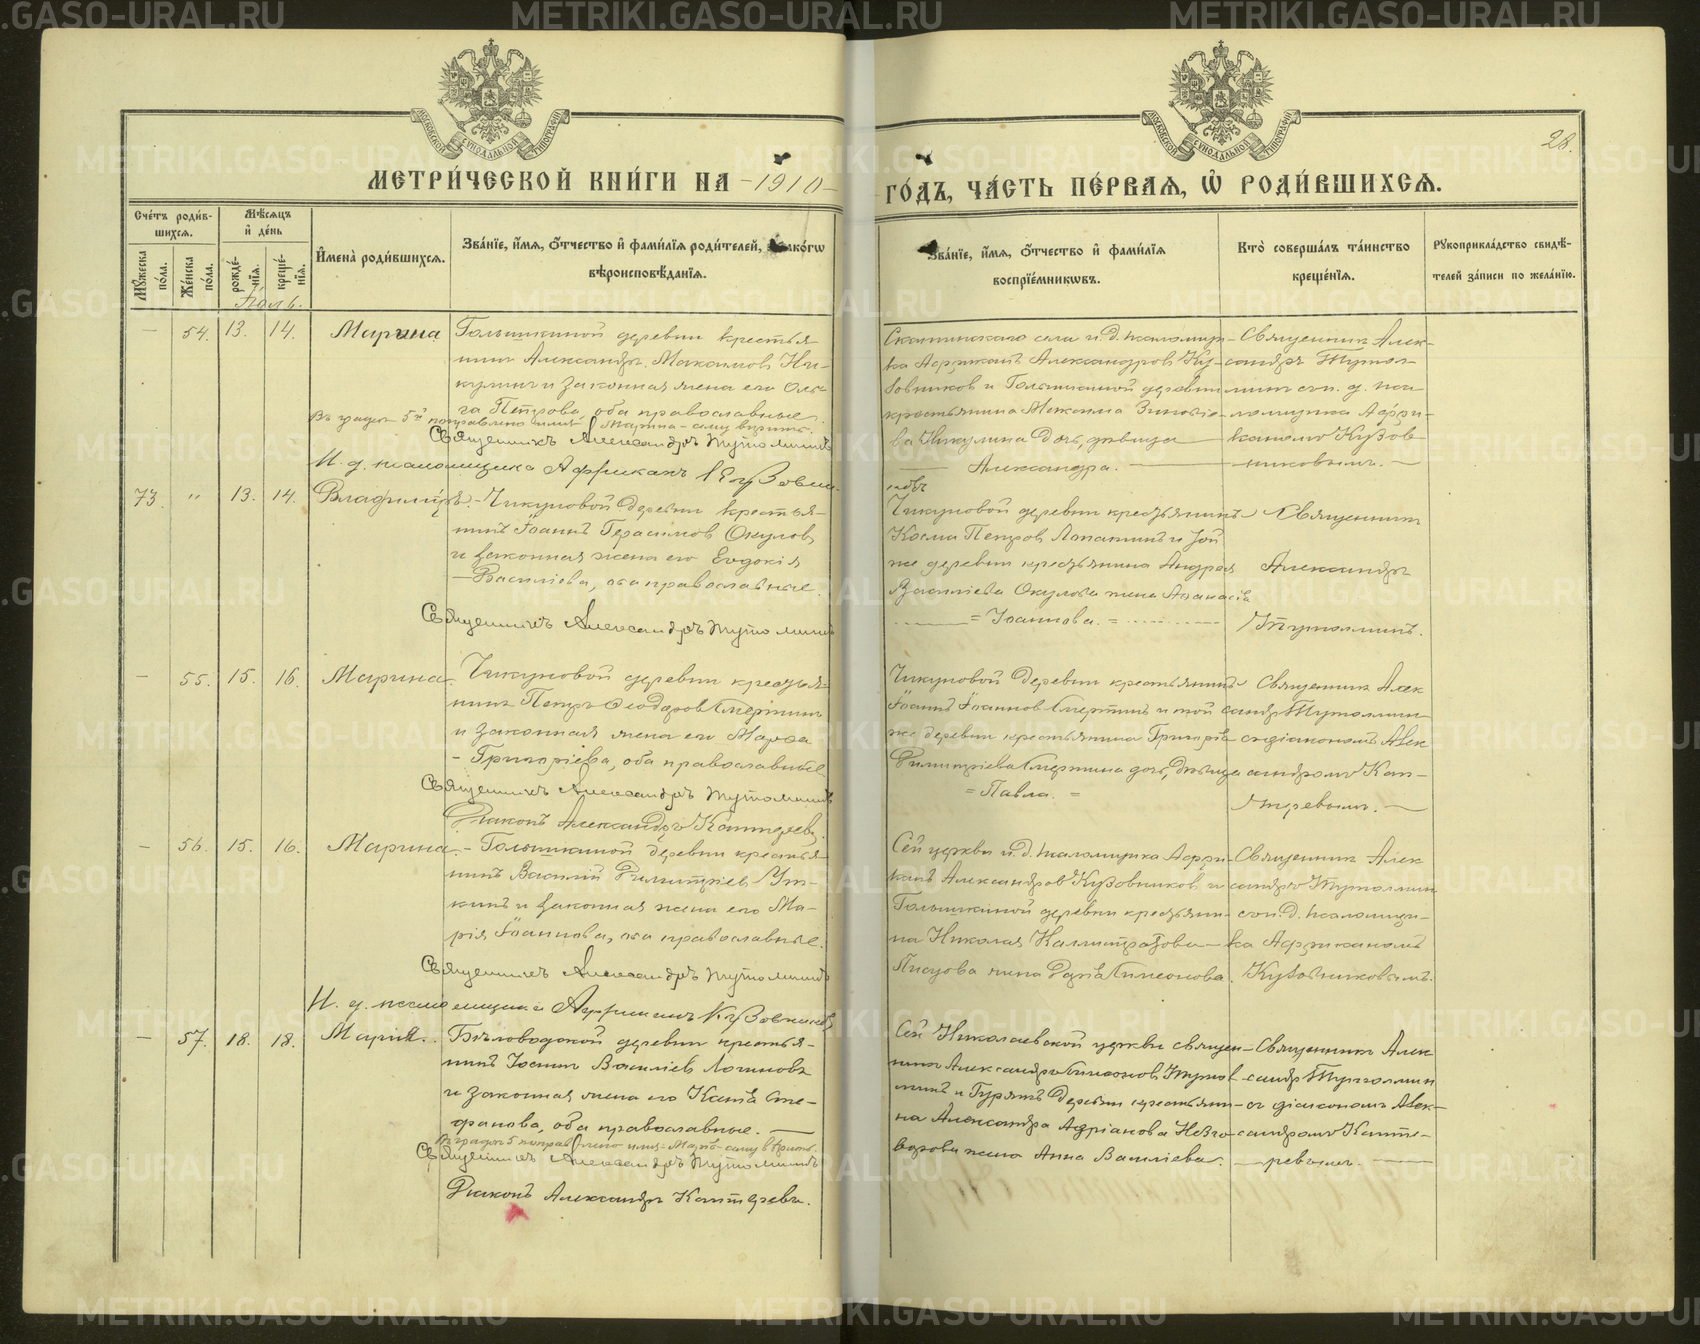 МЕТРИ́ЧЕСКОЙ КНИ́ГИ НА 1910
ГО́ДЪ, ЧА́СТЬ ПЕ́РВАЯ, Ѡ҆ РОДИ́ВШИХСЯ.
28.
МОСКОВСКОЙ СѴНОДАЛЬНОЙ ТИПОГРАФІИ
МОСКОВСКОЙ СѴНОДАЛЬНОЙ ТИПОГРАФІИ
Сче́тъ роди́вшихся.
Мꙋжеска по́ла.
Же́нска по́ла.
Мѣ́сяцъ и҆ де́нь
рожде́нїя.
креще́нїя.
И҆мена̀ роди́вшихся.
Зва́нїе, и҆́мя, ѻ҆́тчество и҆ фами́лїя роди́телей, и҆ како́гѡ
вѣроисповѣ́данїя.
Зва́нїе, и҆́мя, ѻ҆́тчество и҆ фами́лїя
воспрїе́мникѡвъ.
Кто̀ соверша́лъ та́инство
креще́нїя.
Рꙋкоприкла́дство свидѣ́-
телей за́писи по жела́нїю.
Іюль.
— 54. 13. 14. Марина
Голышкиной деревни крестья-
нинъ Александръ Максимовъ Ни-
кулинъ и законная жена его Оль-
га Петрова, оба православные.
Въ графѣ 5й поправлено имя „Марина“ – сему верить.
Священникъ Александръ Тутолминъ
И. д. псаломщика Африканъ Кузовни-
Скатинскаго села и. д. псаломщи-
ка Африканъ Александровъ Ку-
зовниковъ и Голышкиной деревни
крестьянина Максима Зиновіе-
ва Никулина дочь, дѣвица
Александра.
Священникъ Алек-
сандръ Тутол-
минъ съ и. д. пса-
ломщика Афри-
каномъ Кузов-
никовымъ.
ковъ
73. „ 13. 14. Владиміръ.
Чикуновой деревни крестья-
нинъ Іоаннъ Герасимовъ Окуловъ
и законная жена его Евдокія
Васильева, оба православные.
Священникъ Александръ Тутолминъ
Чикуновой деревни крестьянинъ
Косма Петровъ Лопатинъ и той
же деревни крестьянина Андрея
Васильева Окулова жена Аѳанасія
= Іоаннова. =
Священникъ
Александръ
Тутолминъ.
— 55. 15. 16. Марина.
Чикуновой деревни крестья-
нинъ Петръ Ѳеодоровъ Смертинъ
и законная жена его Марѳа
Григоріева, оба православные.
Священникъ Александръ Тутолминъ
Діаконъ Александръ Каптеревъ.
Чикуновой деревни крестьянинъ
Іоаннъ Іоанновъ Смертинъ и той
же деревни крестьянина Григорія
Димитріева Смертина дочь, дѣвица
= Павла. =
Священникъ Алек
сандръ Тутолмин
съ діакономъ Алек
сандромъ Кап-
теревымъ.
— 56. 15. 16. Марина.
Голышкиной деревни крестья-
нинъ Василій Димитріевъ Ут-
кинъ и законная жена его Ма-
рія Іоаннова, оба православные.
Священникъ Александръ Тутолминъ
И. д. псаломщика Африканъ Кузовниковъ
Сей церкви и. д. псаломщика Афри-
канъ Александровъ Кузовниковъ и
Голышкиной деревни крестьяни-
на Николая Каллистратова
Писцова жена Дарія Симеонова.
Священникъ Алек
сандръ Тутолмин
съ и. д. псаломщи-
ка Африканомъ
Кузовниковымъ.
— 57. 18. 18. Марія.
Бѣловодской деревни крестья-
нинъ Іоаннъ Васильевъ Логиновъ
и законная жена его Ксенія Сте-
фанова, оба православные.
Въ графѣ 5 поправлено имя „Марія“ – сему верить.
Священникъ Александръ Тутолминъ
Діаконъ Александръ Каптеревъ.
Сей Николаевской церкви священ-
никъ Александръ Симеоновъ Тутол
минъ и деревни крестьяни-
на Александра Адріанова
жена Анна Васильева.
Священникъ Алек
сандръ Тутолмин
съ діакономъ Алек-
сандромъ Капте-
ревымъ.
METRIKI.GASO-URAL.RU